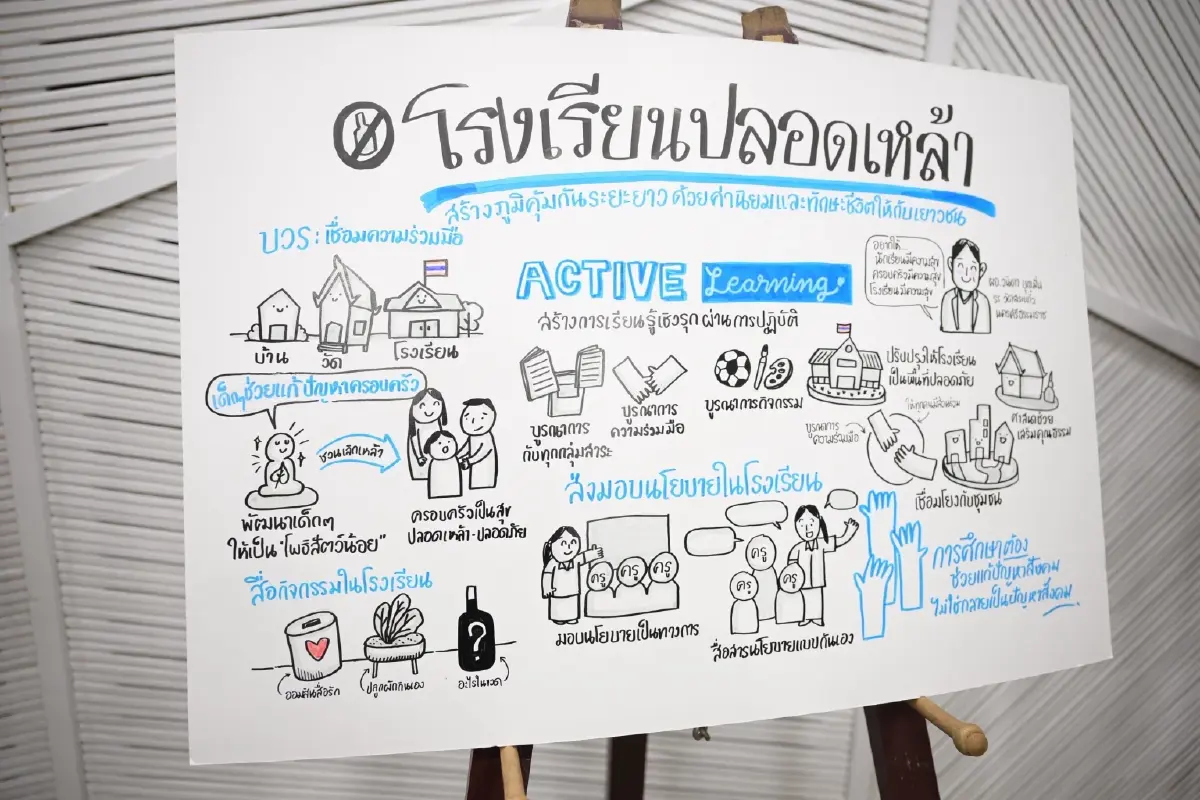 โรงเรียนปลอดเหล้า
สร้างภูมิคุ้มกันระยะยาว ด้วยค่านิยมและทักษะชีวิตให้กับเยาวชน
บวร : เชื่อมความร่วมมือ
บ้าน
วัด
โรงเรียน
เด็กๆช่วยแก้ปัญหาครอบครัว
ชวนเลิกเหล้า
พัฒนาเด็กๆ
ให้เป็น "โพธิสัตว์น้อย"
ครอบครัวเป็นสุข
ปลอดเหล้า - ปลอดภัย
สื่อกิจกรรมในโรงเรียน
ออมสินสื่อรัก
ปลูกผักกินเอง
?
อะไรในขวด
ACTIVE Learning
สร้างการเรียนรู้เชิงรุก ผ่านการปฏิบัติ
บูรณาการ
กับทุกกลุ่มสาระ
บูรณาการ
ความร่วมมือ
บูรณาการกิจกรรม
อยากให้...
นักเรียนมีความสุข
ครอบครัวมีความสุข
โรงเรียนมีความสุข
นครศรีธรรมราช
ปรับปรุงให้โรงเรียน
เป็นพื้นที่ปลอดภัย
ศาสนช่วย
เสริมคุณธรรม
ให้ทุกคนมีส่วนร่วม
บูรณาการ
ความร่วมมือ
เชื่อมโยงกับชุมชน
ส่งมอบนโยบายในโรงเรียน
ครู
ครู
ครู
มอบนโยบายเป็นทางการ
ครู
ครู
ครู
สื่อสารนโยบายแบบกันเอง
การศึกษาต้อง
ช่วยแก้ปัญหาสังคม
ไม่ใช่กลายเป็นปัญหาสังคม